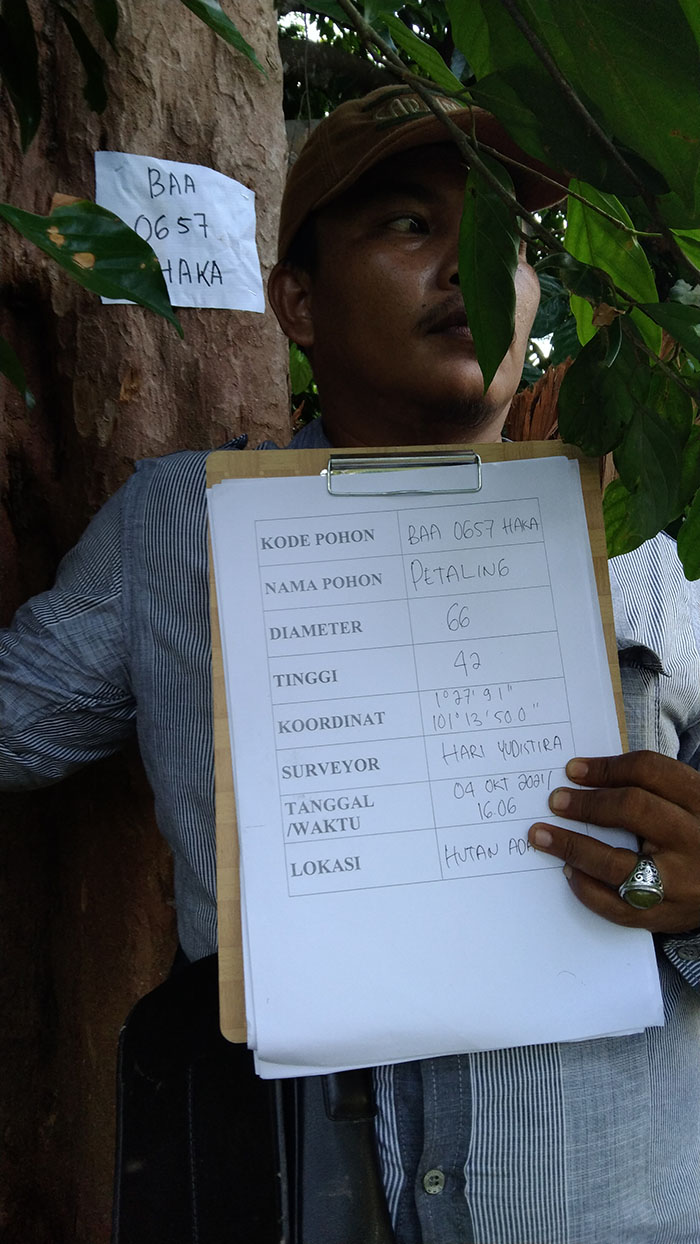 BAA
0657
HAKA
KODE POHON BAA 0657 HAKA
NAMA POHON PETALING
DIAMETER 66
TINGGI 42
KOORDINAT 1°27'91"
101°13'500"
SURVEYOR HARI YUDISTIRA
TANGGAL 04 OKT 2021/
/WAKTU 16.06
LOKASI HUTAN